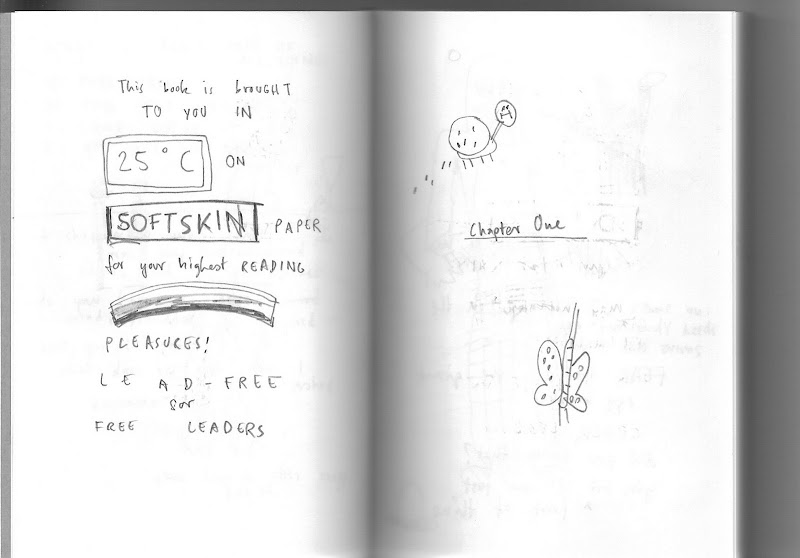 This book is brOUGHT
TO YOU IN
25°C ON
SOFTSKIN PAPER
for your highest READING
PLEASURES!
LEAD-FREE
for
FREE LEADERS
Chapter One